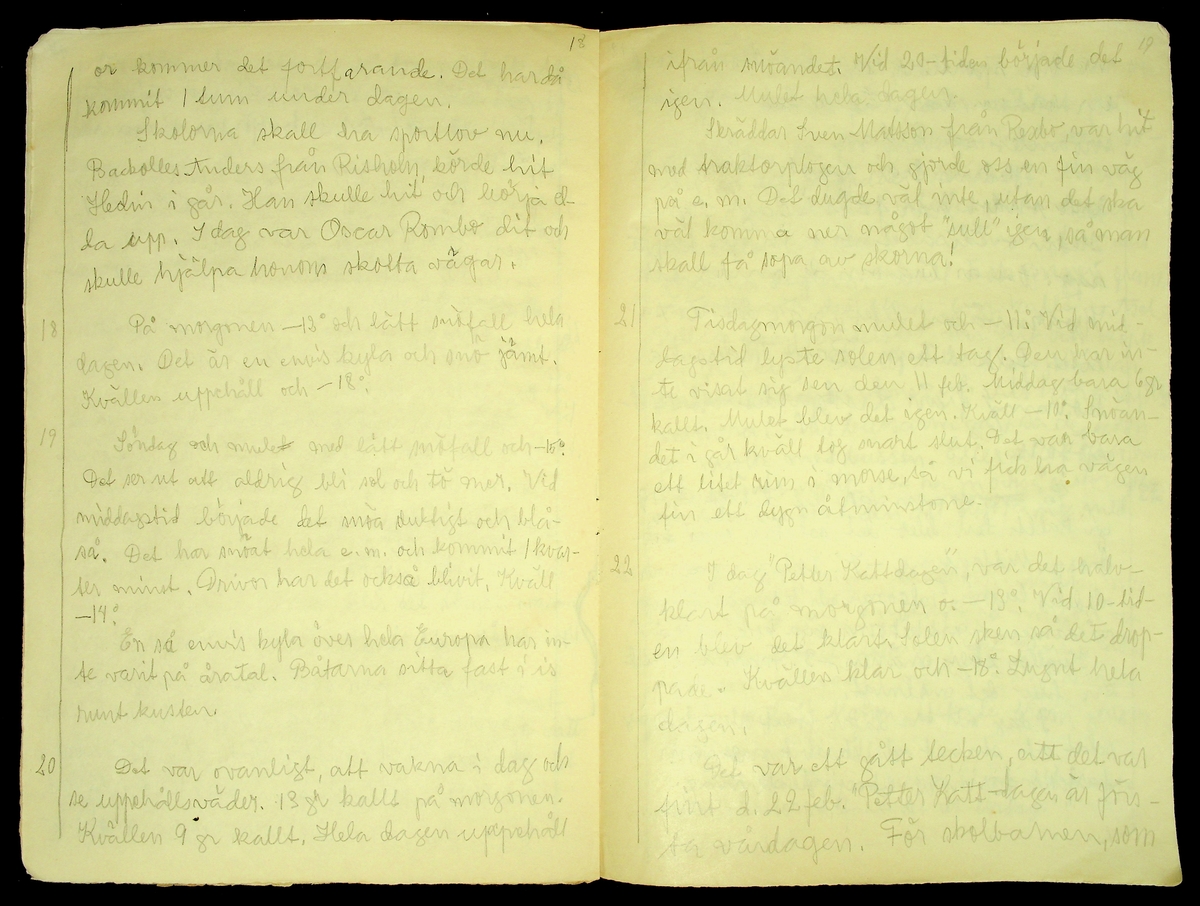 18
or kommer det fortfarande. Det har då
kommit 1 tum under dagen.
Skolorna skall ha sportlov nu.
Backolles Anders från Risholn, körde hit
Hedin i går. Han skulle hit och börja el-
da upp. I dag var Oscar Rombo dit och
skulle hjälpa honom skotta vägar.
18
På morgonen -13° och lätt snöfall hela
dagen. Det är en envis kyla och snö jämt.
Kvällen uppehåll och -18°.
19
Söndag och mulet med lätt snöfall och -15°.
Det ser ut att aldrig bli sol och tö mer. Vid
middagstid började det snöa duktigt och blå-
sa. Det har snöat hela e.m. och kommit 1 kvar-
ter minst. Drivor har det också blivit. Kväll
-14°.
En så envis kyla över hela Europa har in-
te varit på åratal. Båtarna sitta fast i is
runt kusten.
20
Det var ovanligt, att vakna i dag och
se uppehållsväder. 13 gr kallt på morgonen.
Kvällen 9 gr kallt. Hela dagen uppehåll
19
ifrån snöandet. Vid 20-tiden började det
igen. Mulet hela dagen.
Skräddar Sven Matsson från Rexbo, var hit
med traktorplogen och gjorde oss en fin väg
på e.m. Det dugde väl inte, utan det ska
väl komma ner något "sull" igen, så man
skall få sopa av skorna!
21
Tisdagmorgon mulet och -11°. Vid mid-
dagstid lyste solen ett tag. Den har in-
te visat sig sen den 11 feb. Middag bara 6 gr
kallt. Mulet blev det igen. Kväll -10°. Snöan-
det i går kväll tog snart slut. Det var bara
ett litet rim i morse, så vi fick ha vägen
fin ett dygn åtminstone.
22
I dag "Petter Kattdagen", var det halv-
klart på morgonen o. -13°. Vid 10-tid-
en blev det klart. Solen sken så det drop-
pade. Kvällen klar och -18°. Lugnt hela
dagen.
Det var ett gått tecken, att det var
fint d. 22 feb. "Petter Katt-dagen är förs-
ta vårdagen. För skolbarnen, som